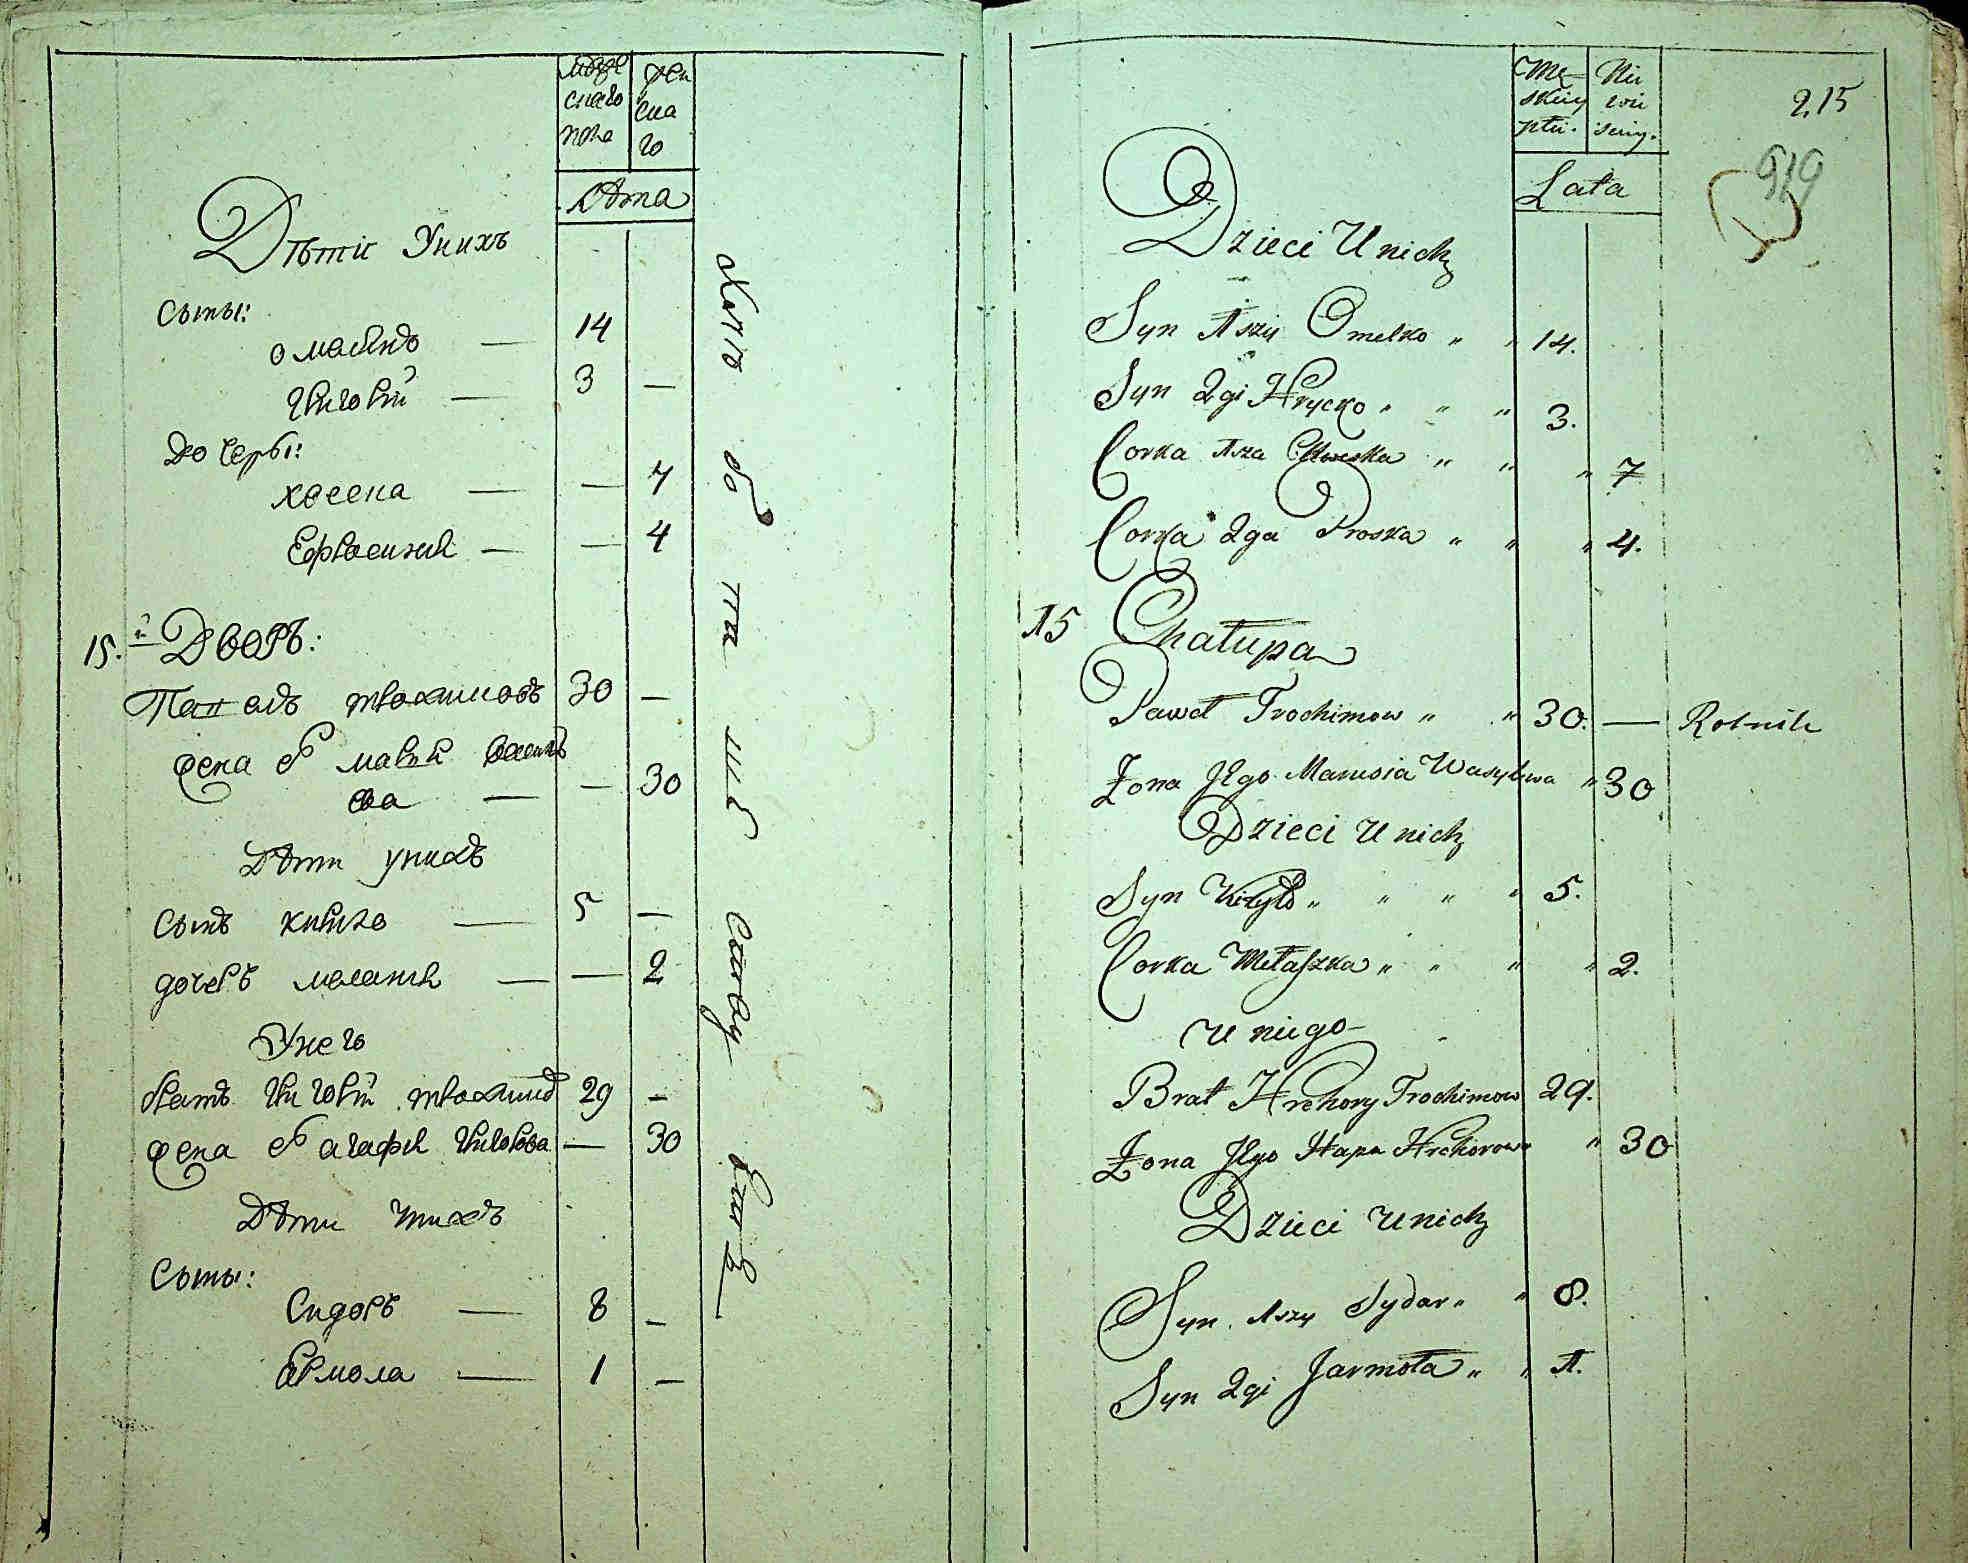 мужескаго пола
женскаго
Лѣта
Дѣти У нихъ
сыны:
14
3 —
дочеры:
— 7
— 4
15.й Дворъ:
Павелъ трохимовъ 30 —
жена его
ва — — 30
Дѣти у нихъ
сынъ кирило — 5 —
дочеръ меланія — — 2
У него
братъ григорій трохимовъ 29 —
жена его агафія григорова — 30
Дѣти у нихъ
Сыны:
Сидоръ — 8 —
Ермола — 1 —
215
919
Lata
Dzieci U nich
Syn 1szy Omelko " " 14.
Syn 2gi Hrycko " " " 3.
Corka 1sza " " " 7
Corka 2ga Proska " " " 4.
15 Chałupa
Paweł Trochimow " " 30. — Rolnik
Żona Jego Marusia Wasylowa " 30
Dzieci U nich
Syn Kiryło " " " " 5.
Corka Mełaszka " " " " 2.
U niego
Brat Hrehory Trochimow 29.
Żona Jego Hapa Hrehorowa " 30
Dzieci U nich
Syn 1szy Sydor " " 8.
Syn 2gi Jarmoła " " 1.